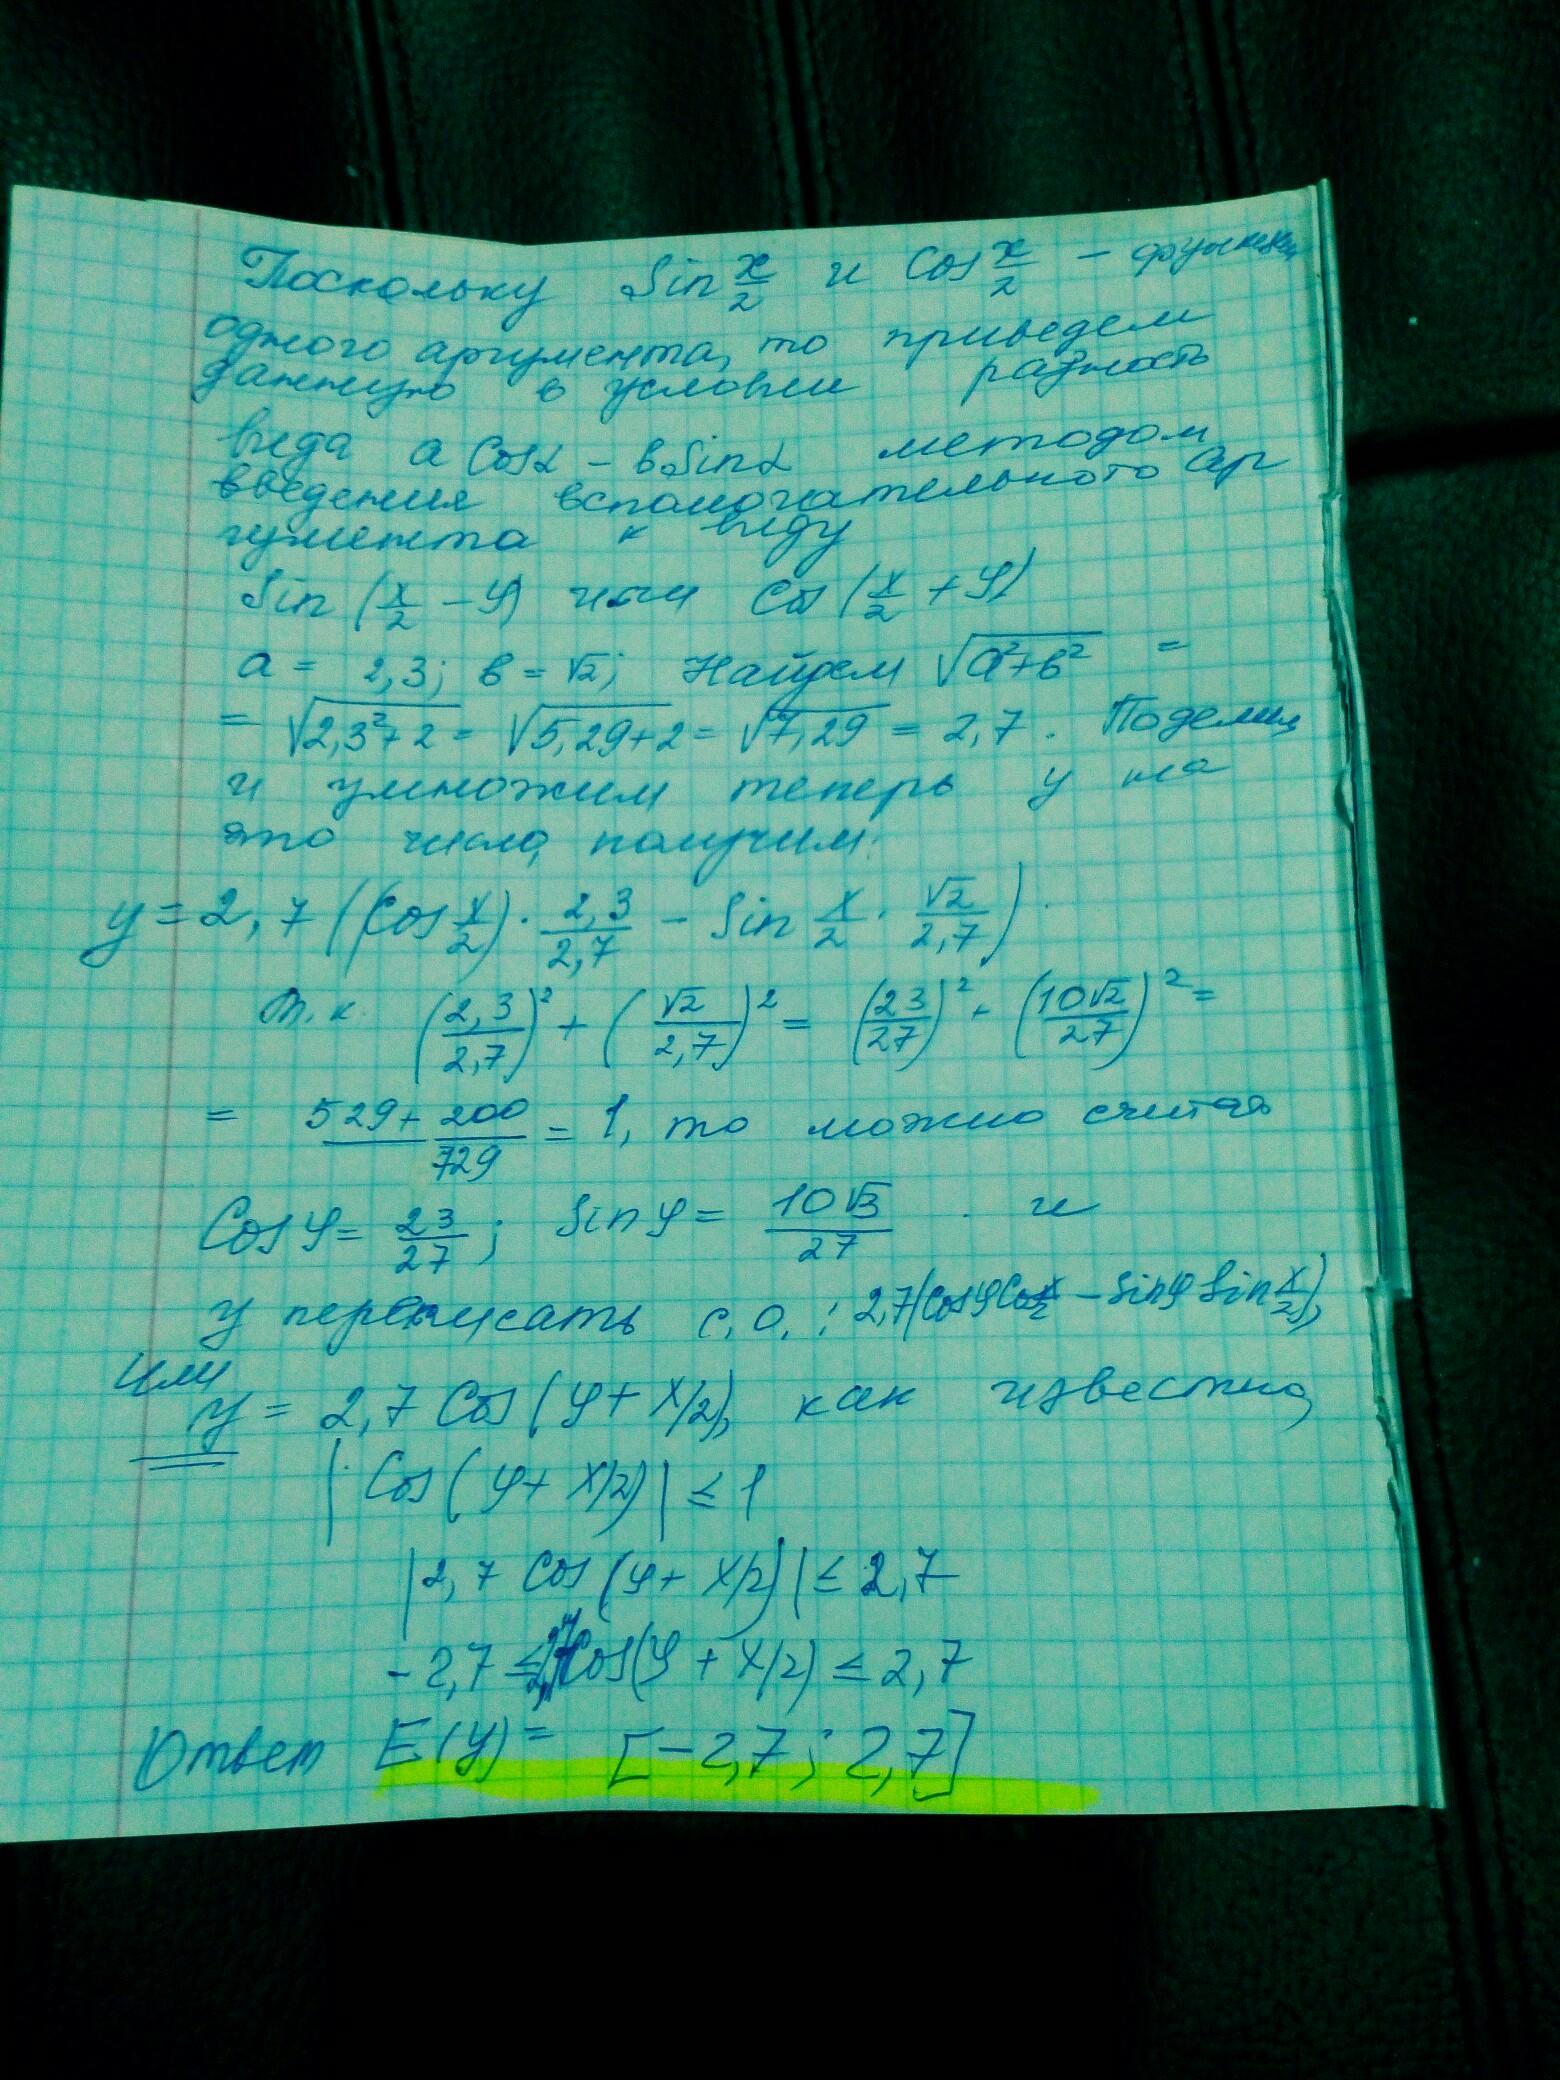 Поскольку Sin x/2 и Cos x/2 – функции
одного аргумента, то приведем
данную в условии разность
вида a Cosα – вSinα методом
введения вспомогательного ар
гумента к виду
Sin (x/2 – φ) или Cos (x/2 + φ)
a = 2,3; в = √2; Найдем √(a²+в²) =
= √(2,3²+2) = √(5,29+2) = √7,29 = 2,7. Поделим
и умножим теперь у на
это число, получим:
y = 2,7 ((Cos x/2) · 2,3/2,7 – Sin x/2 · √2/2,7).
т.к. (2,3/2,7)² + (√2/2,7)² = (23/27)² + (10√2/27)² =
= (529 + 200)/729 = 1, то можно считать
Cos φ = 23/27; Sin φ = 10√3/27 . и
у переписать с.о.: 2,7(Cosφ Cos x/2 – Sinφ Sin x/2),
или
y = 2,7 Cos (φ + x/2), как известно,
|Cos (φ + x/2)| ≤ 1
|2,7 Cos (φ + x/2)| ≤ 2,7
-2,7 ≤ 2,7 Cos(φ + x/2) ≤ 2,7
Ответ E(y) = [–2,7; 2,7]